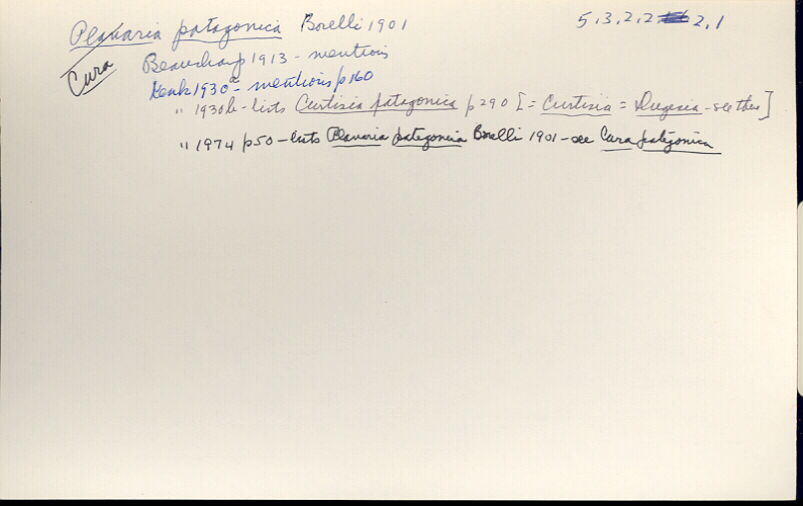 Planaria patagonica Borelli 1901 5.3.2.2 2.1
Cura
Beauchamp 1913 - mentions
Kenk 1930a - mentions p160
" 1930b - lists Curtisia patagonica p290 [= Curtisia = Dugesia - see there]
" 1974 p50 - lists Planaria patagonica Borelli 1901 - see Cura patagonica